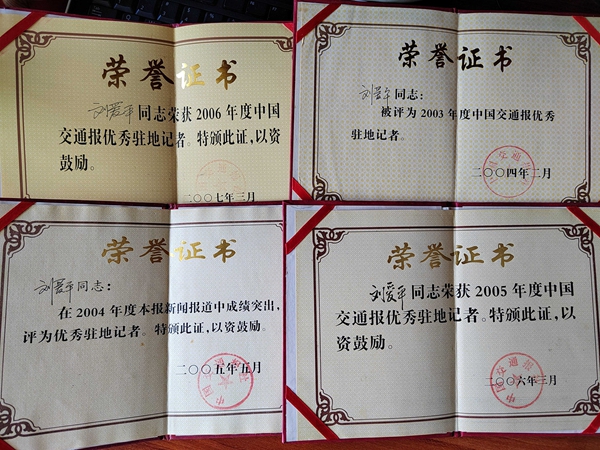 荣誉证书
刘爱平同志荣获2006年度中国
交通报优秀驻地记者。特颁此证,以资
鼓励。
二〇〇七年三月
荣誉证书
刘爱平同志:
被评为2003年度中国交通报优秀
驻地记者。
二〇〇四年二月
荣誉证书
刘爱平同志:
在2004年度本报新闻报道中成绩突出,
评为优秀驻地记者。特颁此证,以资鼓励。
二〇〇五年五月
荣誉证书
刘爱平同志荣获2005年度中国
交通报优秀驻地记者。特颁此证,以
资鼓励。
二〇〇六年三月